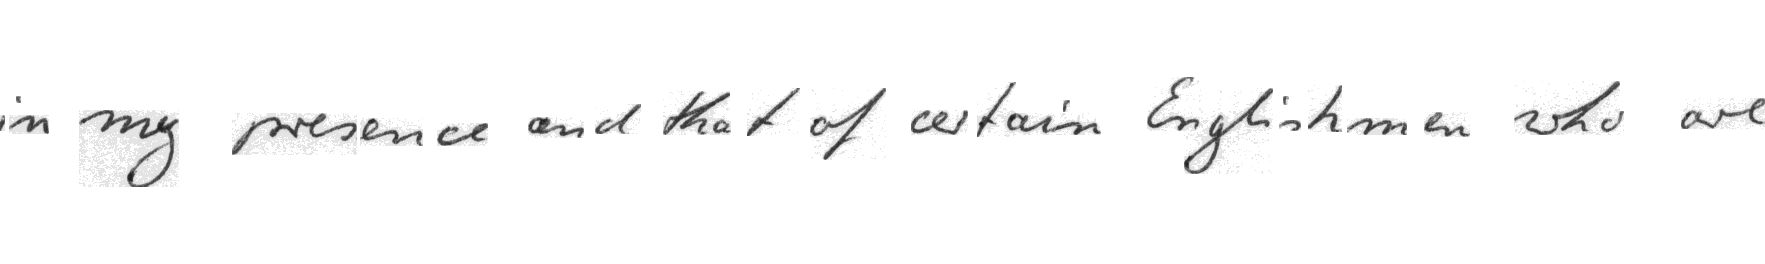 in my presence and that of certain Englishmen who are